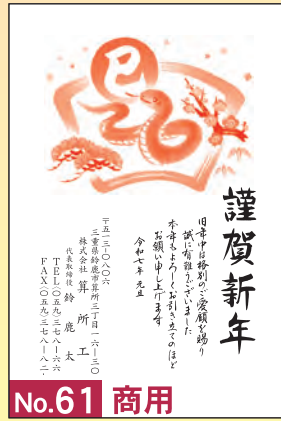 巳
謹賀新年
旧年中は格別のご愛顧を賜り
誠に有難うございました
本年もよろしくお引き立てのほど
お願い申し上げます
令和七年 元旦
〒五一三-〇八〇六
三重県鈴鹿市算所三丁目一六-三〇
株式会社 算所工
代表取締役 鈴鹿太
TEL(〇五九)三七八-六六
FAX(〇五九)三七八-八二
No.61 商用